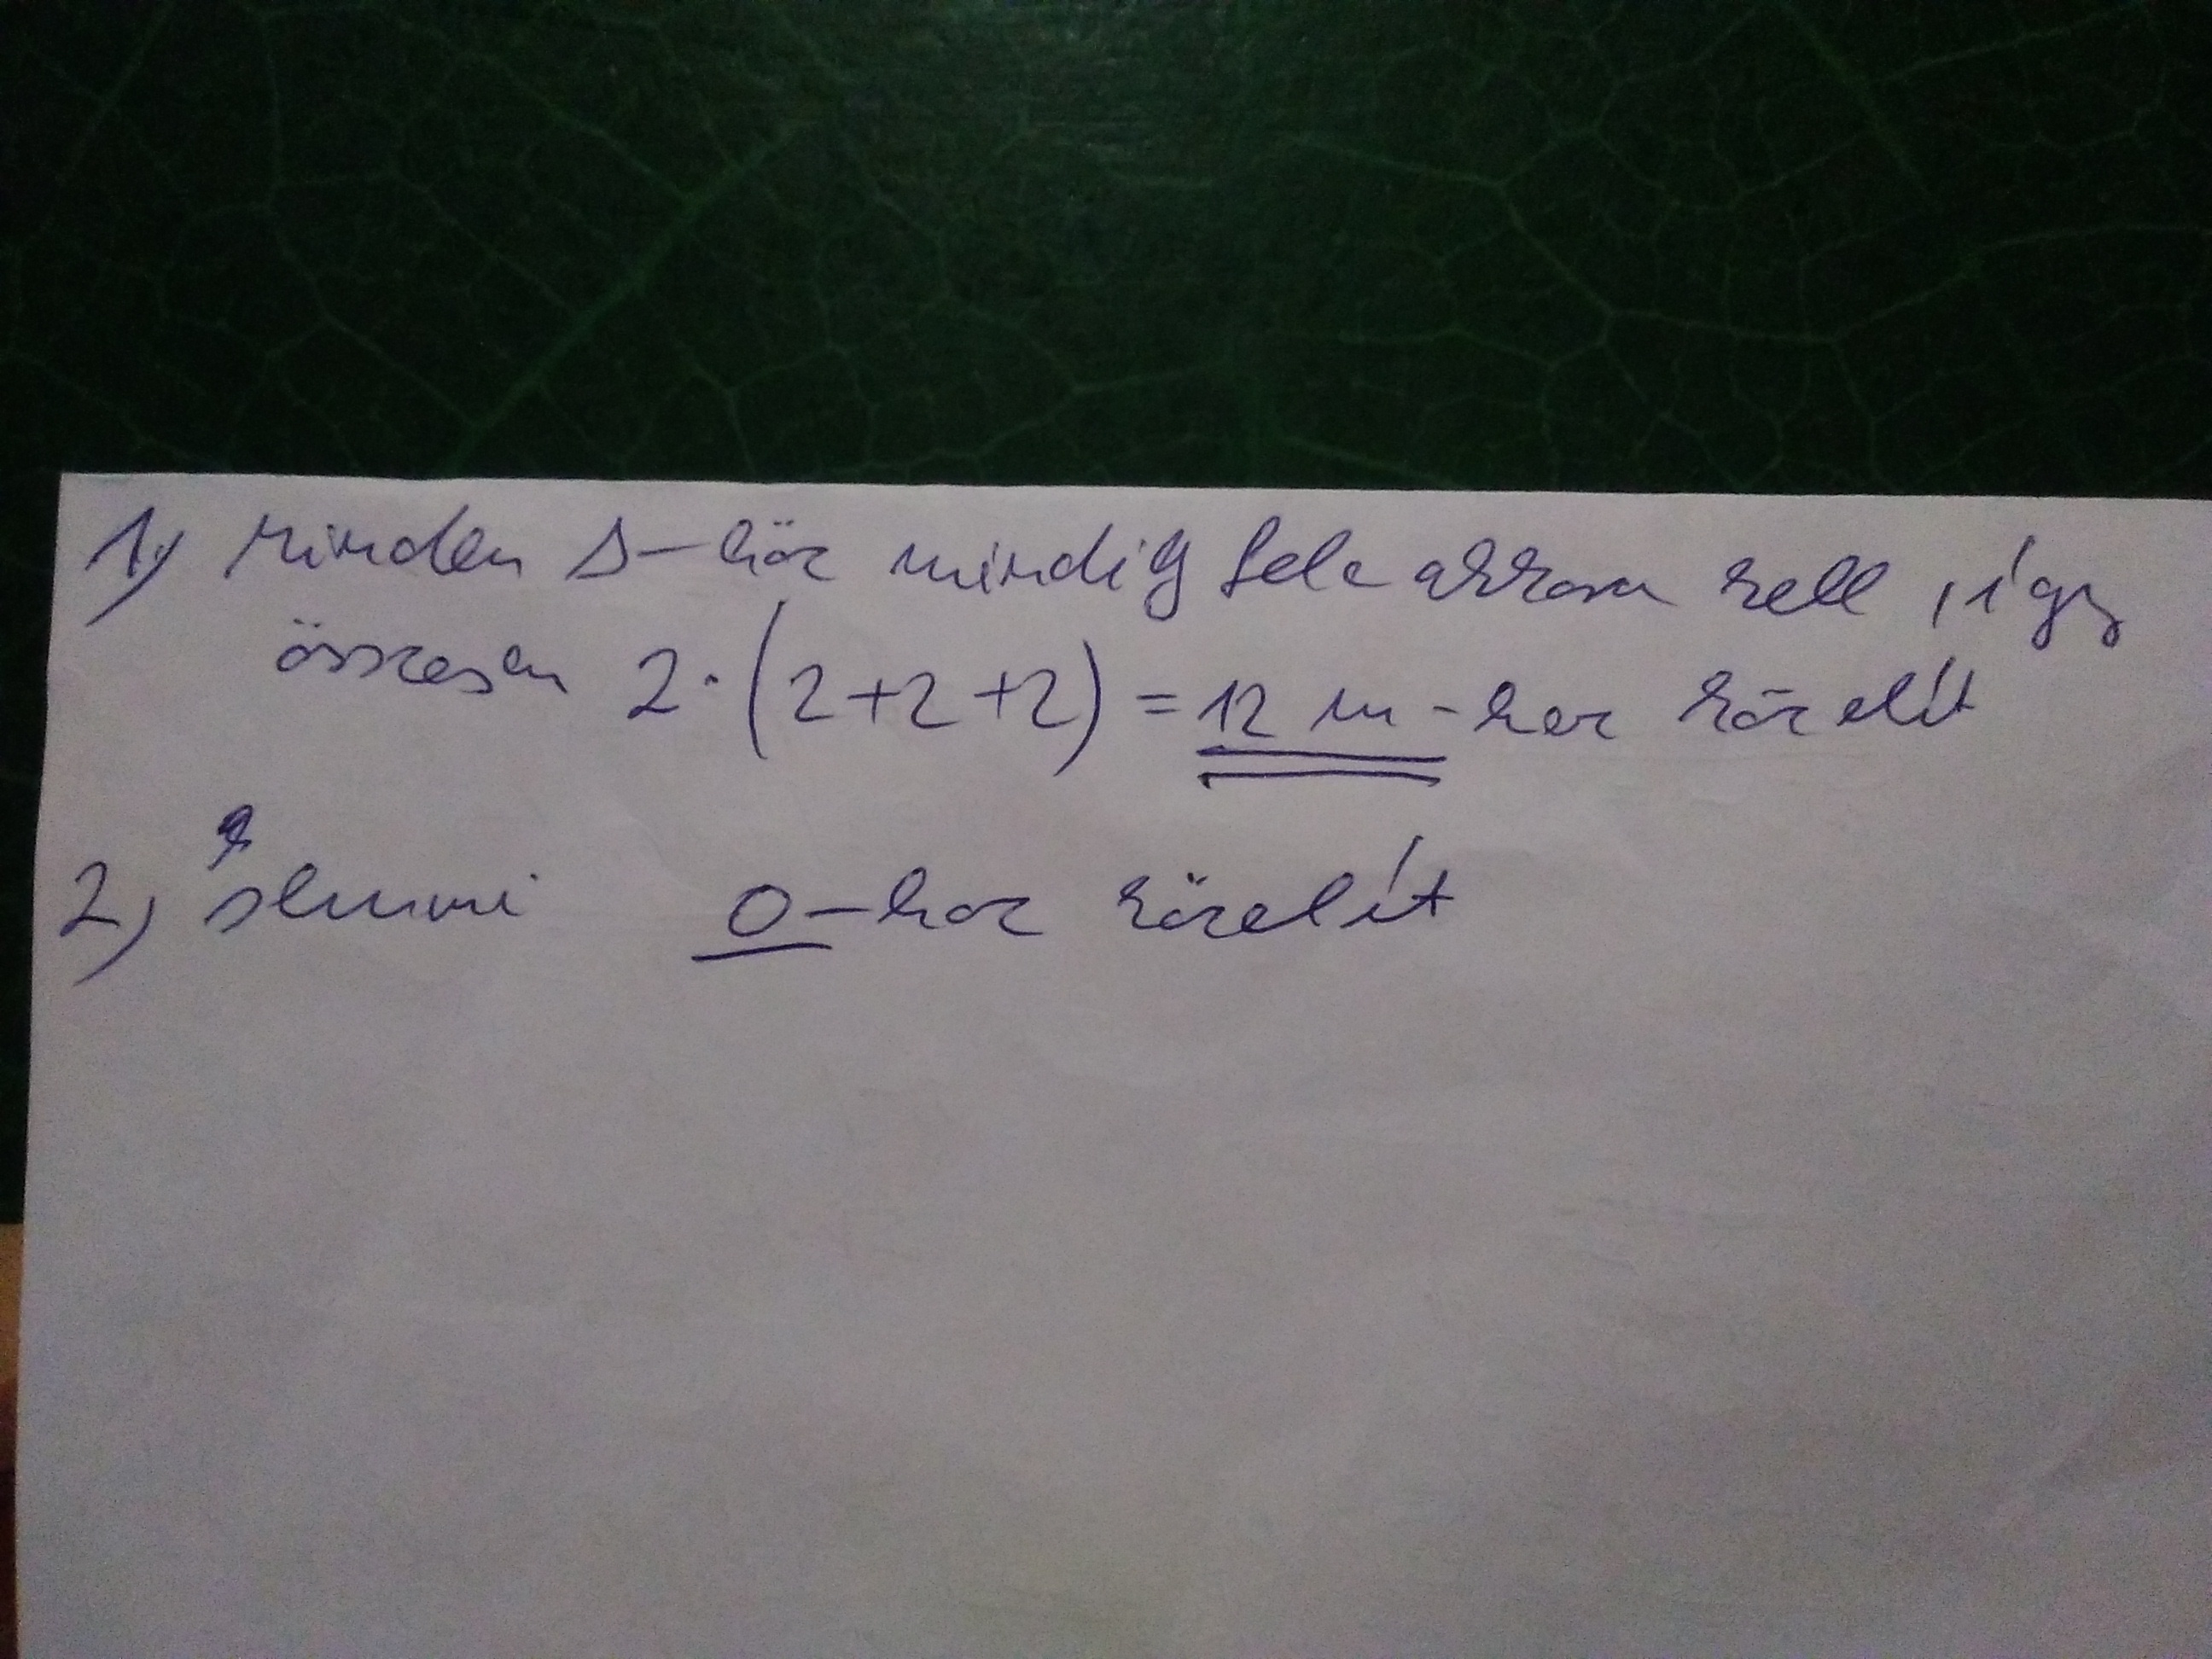 1, Minden Δ-höz mindig fele akkora kell, így
összesen 2·(2+2+2) = 12 m-hez közelít
2, 0-hoz közelít